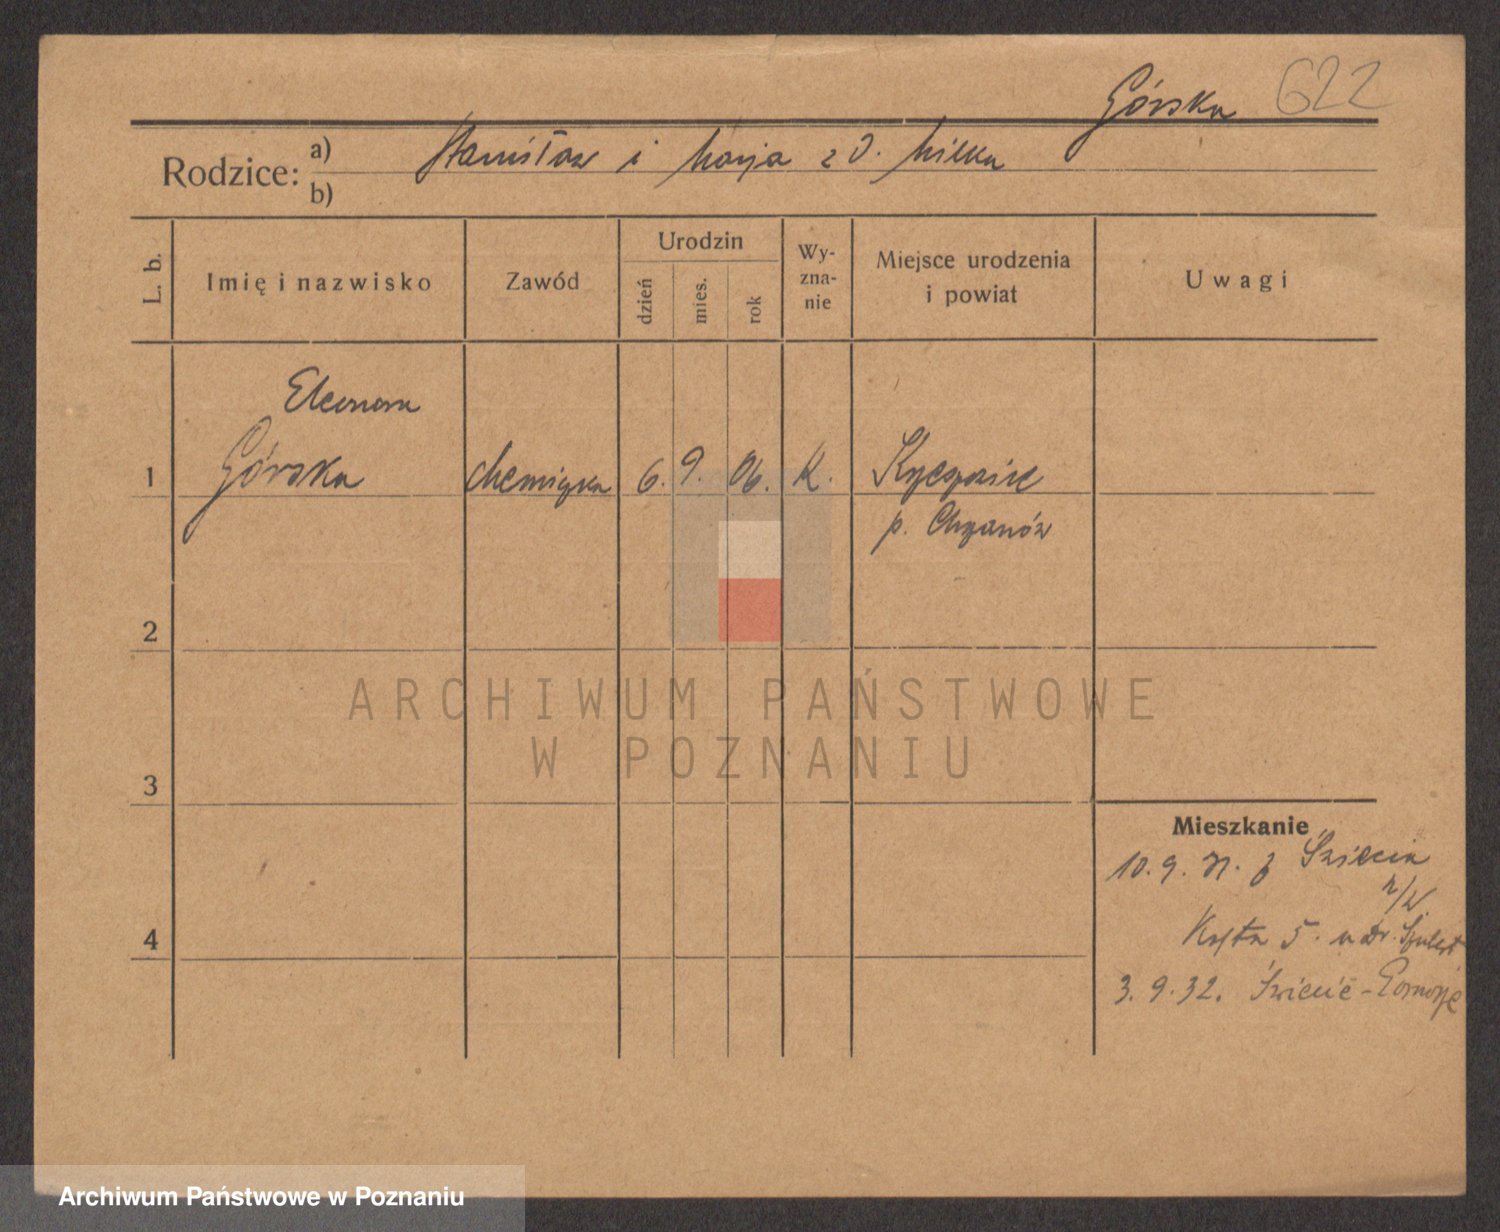 Górska 622
Rodzice: a) Stanisław i Marja z d. Milka
b)
L. b.
Imię i nazwisko
Zawód
Urodzin
dzień
mies.
rok
Wy-
zna-
nie
Miejsce urodzenia
i powiat
Uwagi
Eleonora
1 Górska chemiczka 6. 9. 06. K.
p. Chrzanów
2
3
4
ARCHIWUM PAŃSTWOWE
W POZNANIU
Mieszkanie
10. 9. 31. z Świecia
n/W.
5. u Dr.
3. 9. 32. Świecie - Pomorze
Archiwum Państwowe w Poznaniu